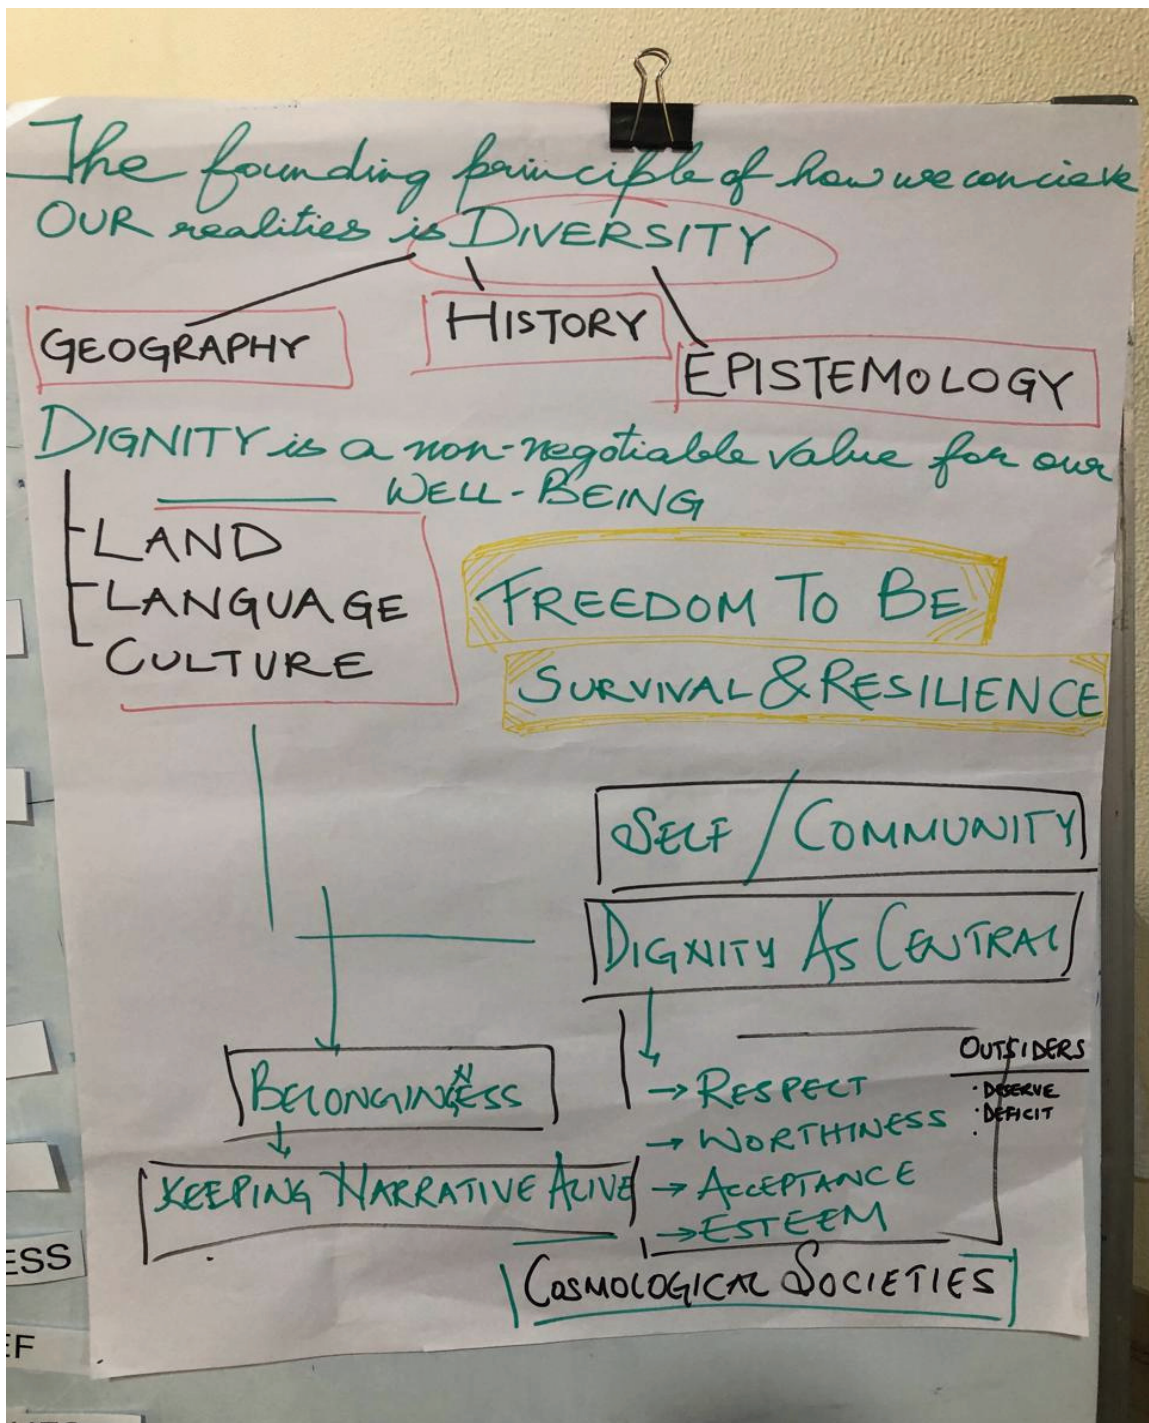 The founding principle of how we concieve
OUR realities is DIVERSITY
GEOGRAPHY
HISTORY
EPISTEMOLOGY
DIGNITY is a non-negotiable value for our
WELL-BEING
LAND
LANGUAGE
CULTURE
FREEDOM TO BE
SURVIVAL & RESILIENCE
SELF / COMMUNITY
DIGNITY AS CENTRAL
BELONGINGNESS
KEEPING NARRATIVE ALIVE
→ RESPECT
→ WORTHINESS
→ ACCEPTANCE
→ ESTEEM
OUTSIDERS
· DESERVE
· DEFICIT
·
COSMOLOGICAL SOCIETIES
ESS
EF